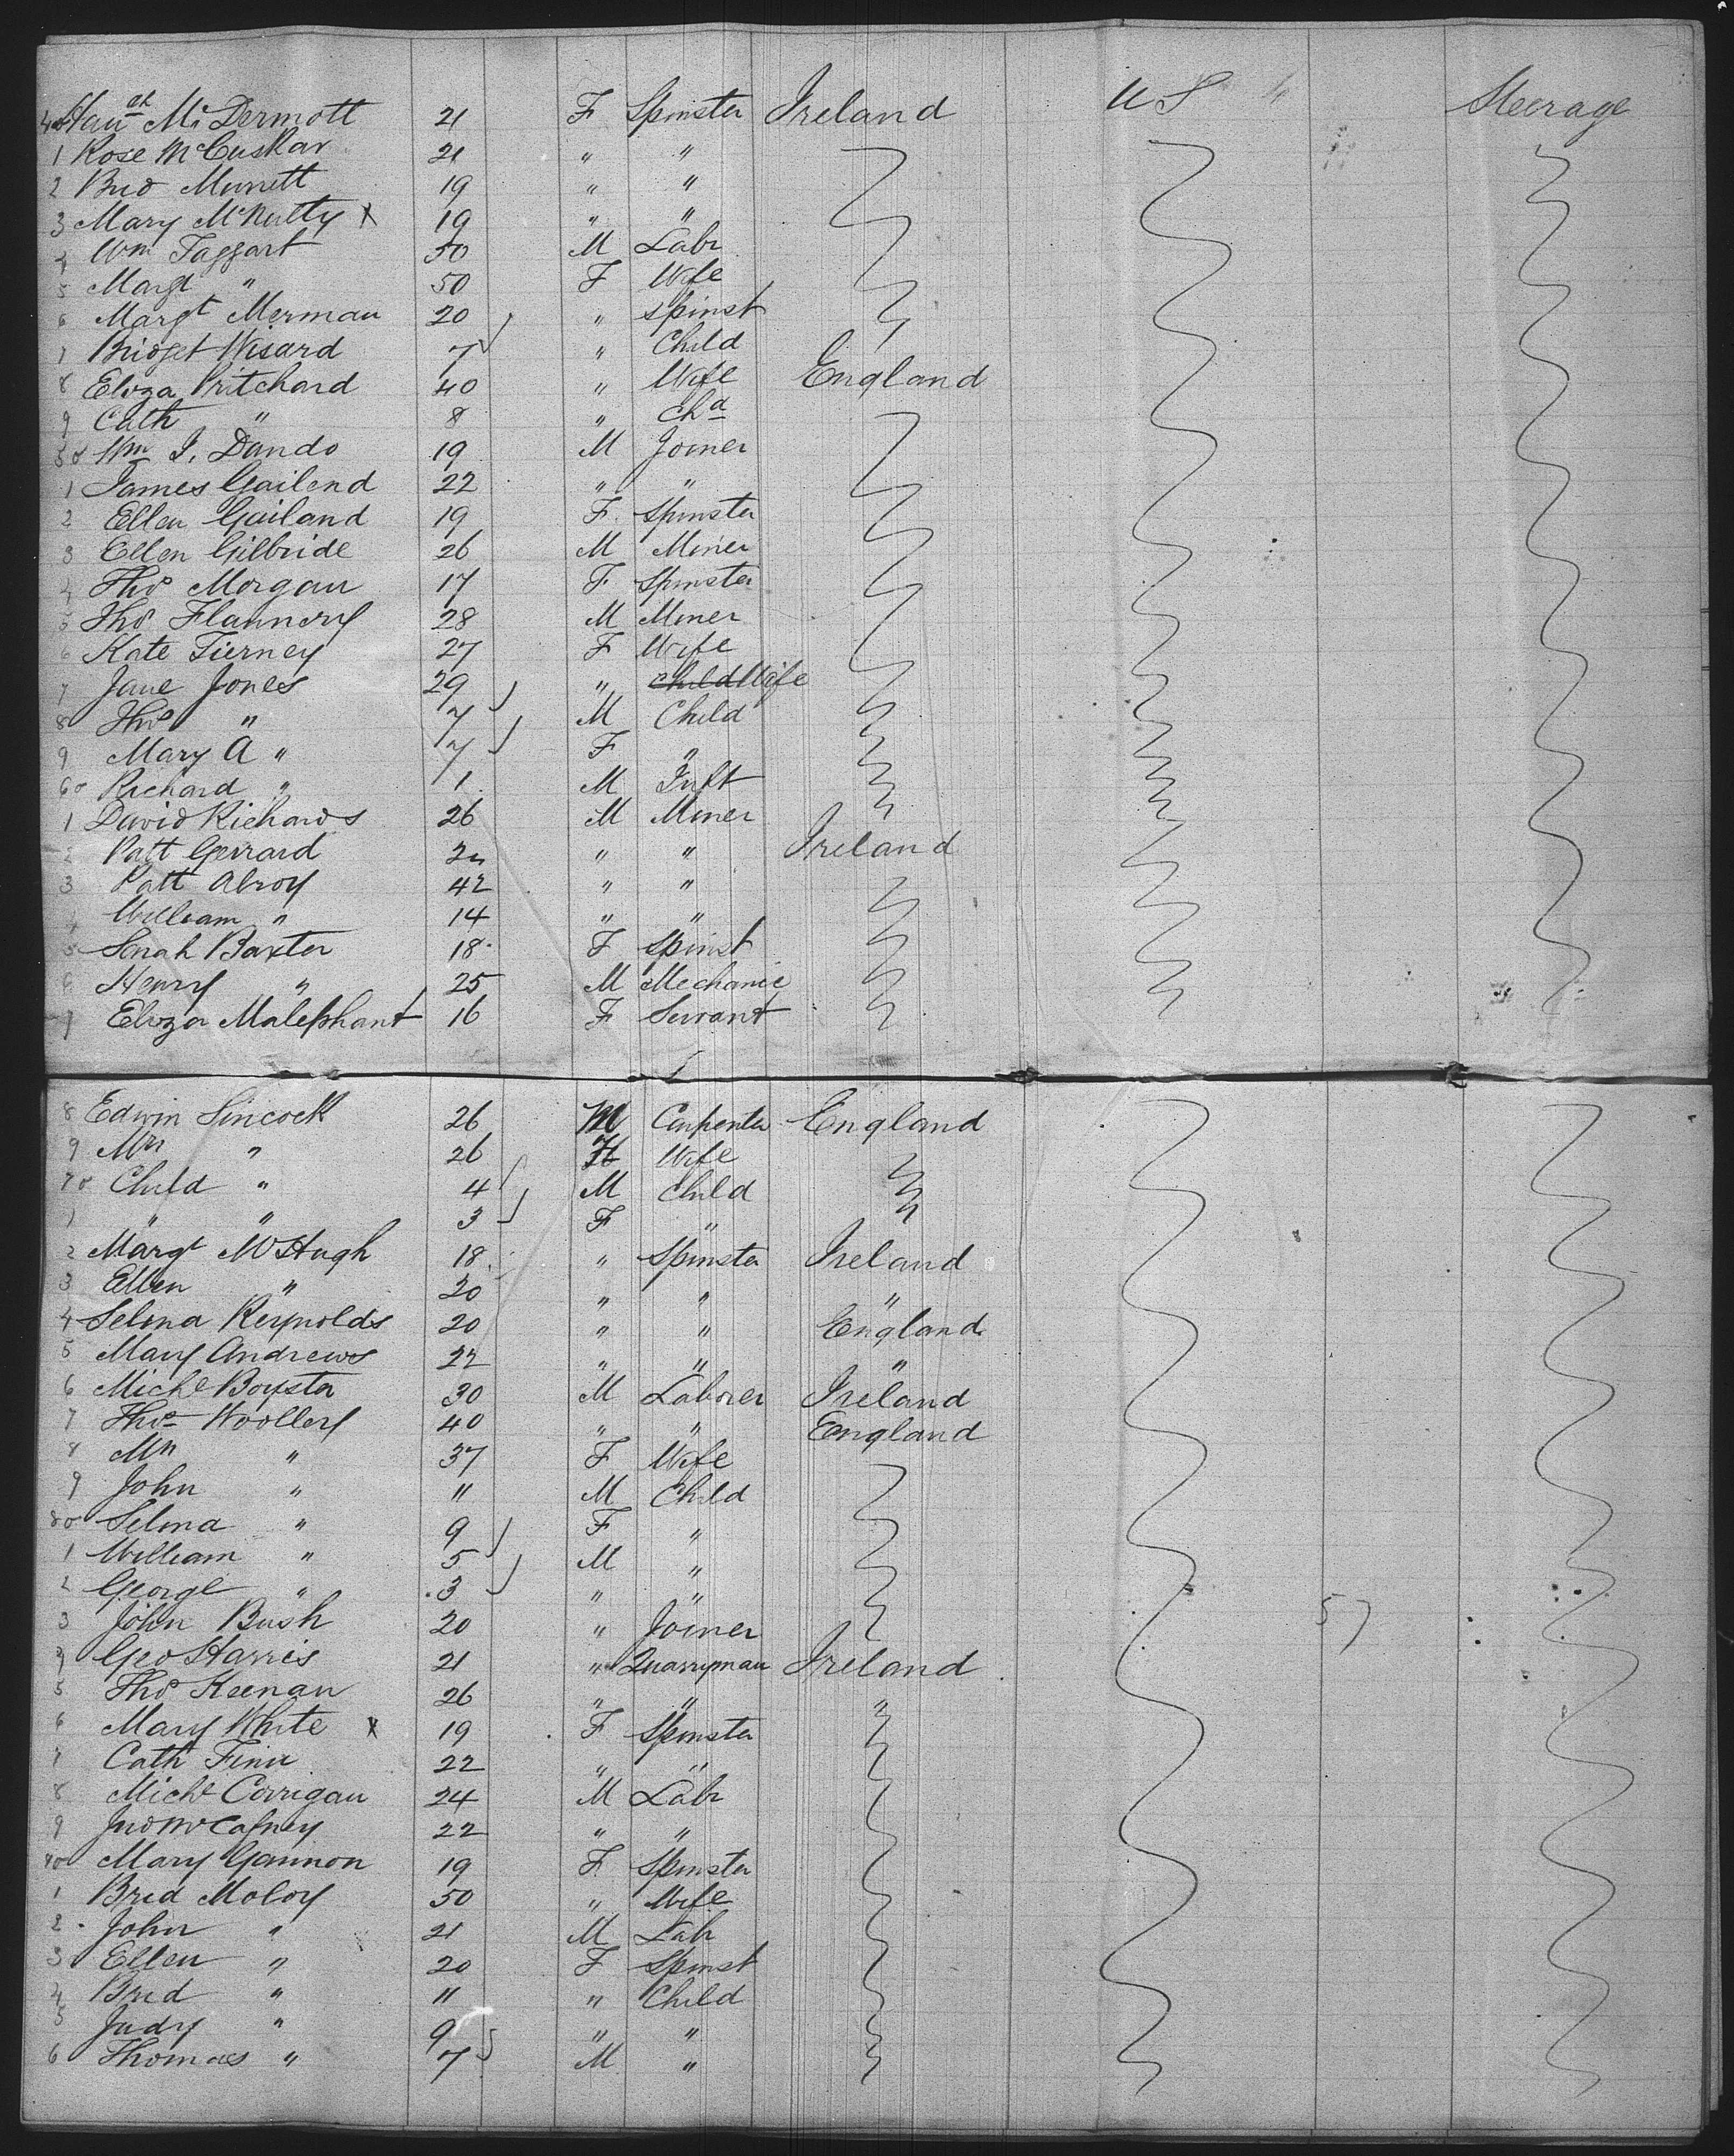 40 Hanah McDermott 21 F Spinster Ireland U S Steerage
1 Rose McCuskar 21 " "
2 Brid Munett 19 " "
3 Mary McNulty X 19 " "
4 Wm Taggart 50 M Labr
5 Margt " 50 F Wife
6 Margt Merman 20 " Spinst
7 Bridget Wisard 7 " Child
8 Eliza Pritchard 40 " Wife England
9 Cath " 8 " Chd
50 Wm J. Dando 19 M Joiner
1 James Gailend 22 " "
2 Ellen Gailand 19 F Spinster
3 Ellen Gilbride 26 M Miner
4 Thos Morgan 17 F Spinster
5 Thos Flannery 28 M Miner
6 Kate Tierney 27 F Wife
7 Jane Jones 29 " Child Wife
8 Thos " 7 M Child
9 Mary A " 7 F "
60 Richard " 1 M Inft
1 David Richards 26 M Miner
2 Patt Gerrard " " Ireland
3 Patt Alroy 42 " "
4 William " 14 " "
5 Senah Baxter 18 F Spinst
6 Henry " 25 M Mechanic
7 Eliza Malephant 16 F Servant
8 Edwin Sincock 26 M Carpenter England
9 Mrs " 26 F Wife
70 Child " 4 M Child
1 " " 3 F "
2 Margt McHugh 18 " Spinster Ireland
3 Ellen " 20 " " "
4 Selina Reynolds 20 " " England
5 Mary Andrews 22 " " "
6 Michl Boyster 30 M Laborer Ireland
7 Thos Woolley 40 " " England
8 Mrs " 37 F Wife
9 John " 11 M Child
80 Selina " 9 F "
1 William " 5 M "
2 George " 3 " "
3 John Bush 20 " Joiner 57
4 Geo Harris 21 " Quarryman Ireland
5 Thos Keenan 26 " " "
6 Mary White X 19 F Spinster
7 Cath Finn 22 " "
8 Michl Corrigan 24 M Labr
9 Jno McCafney 22 " "
90 Mary Gannon 19 F Spinster
1 Brid Moloy 50 " Wife
2 John " 21 M Labr
3 Ellen " 20 F Spinst
4 Brid " 11 " Child
5 Judy " 9 " "
6 Thomas " 7 M "